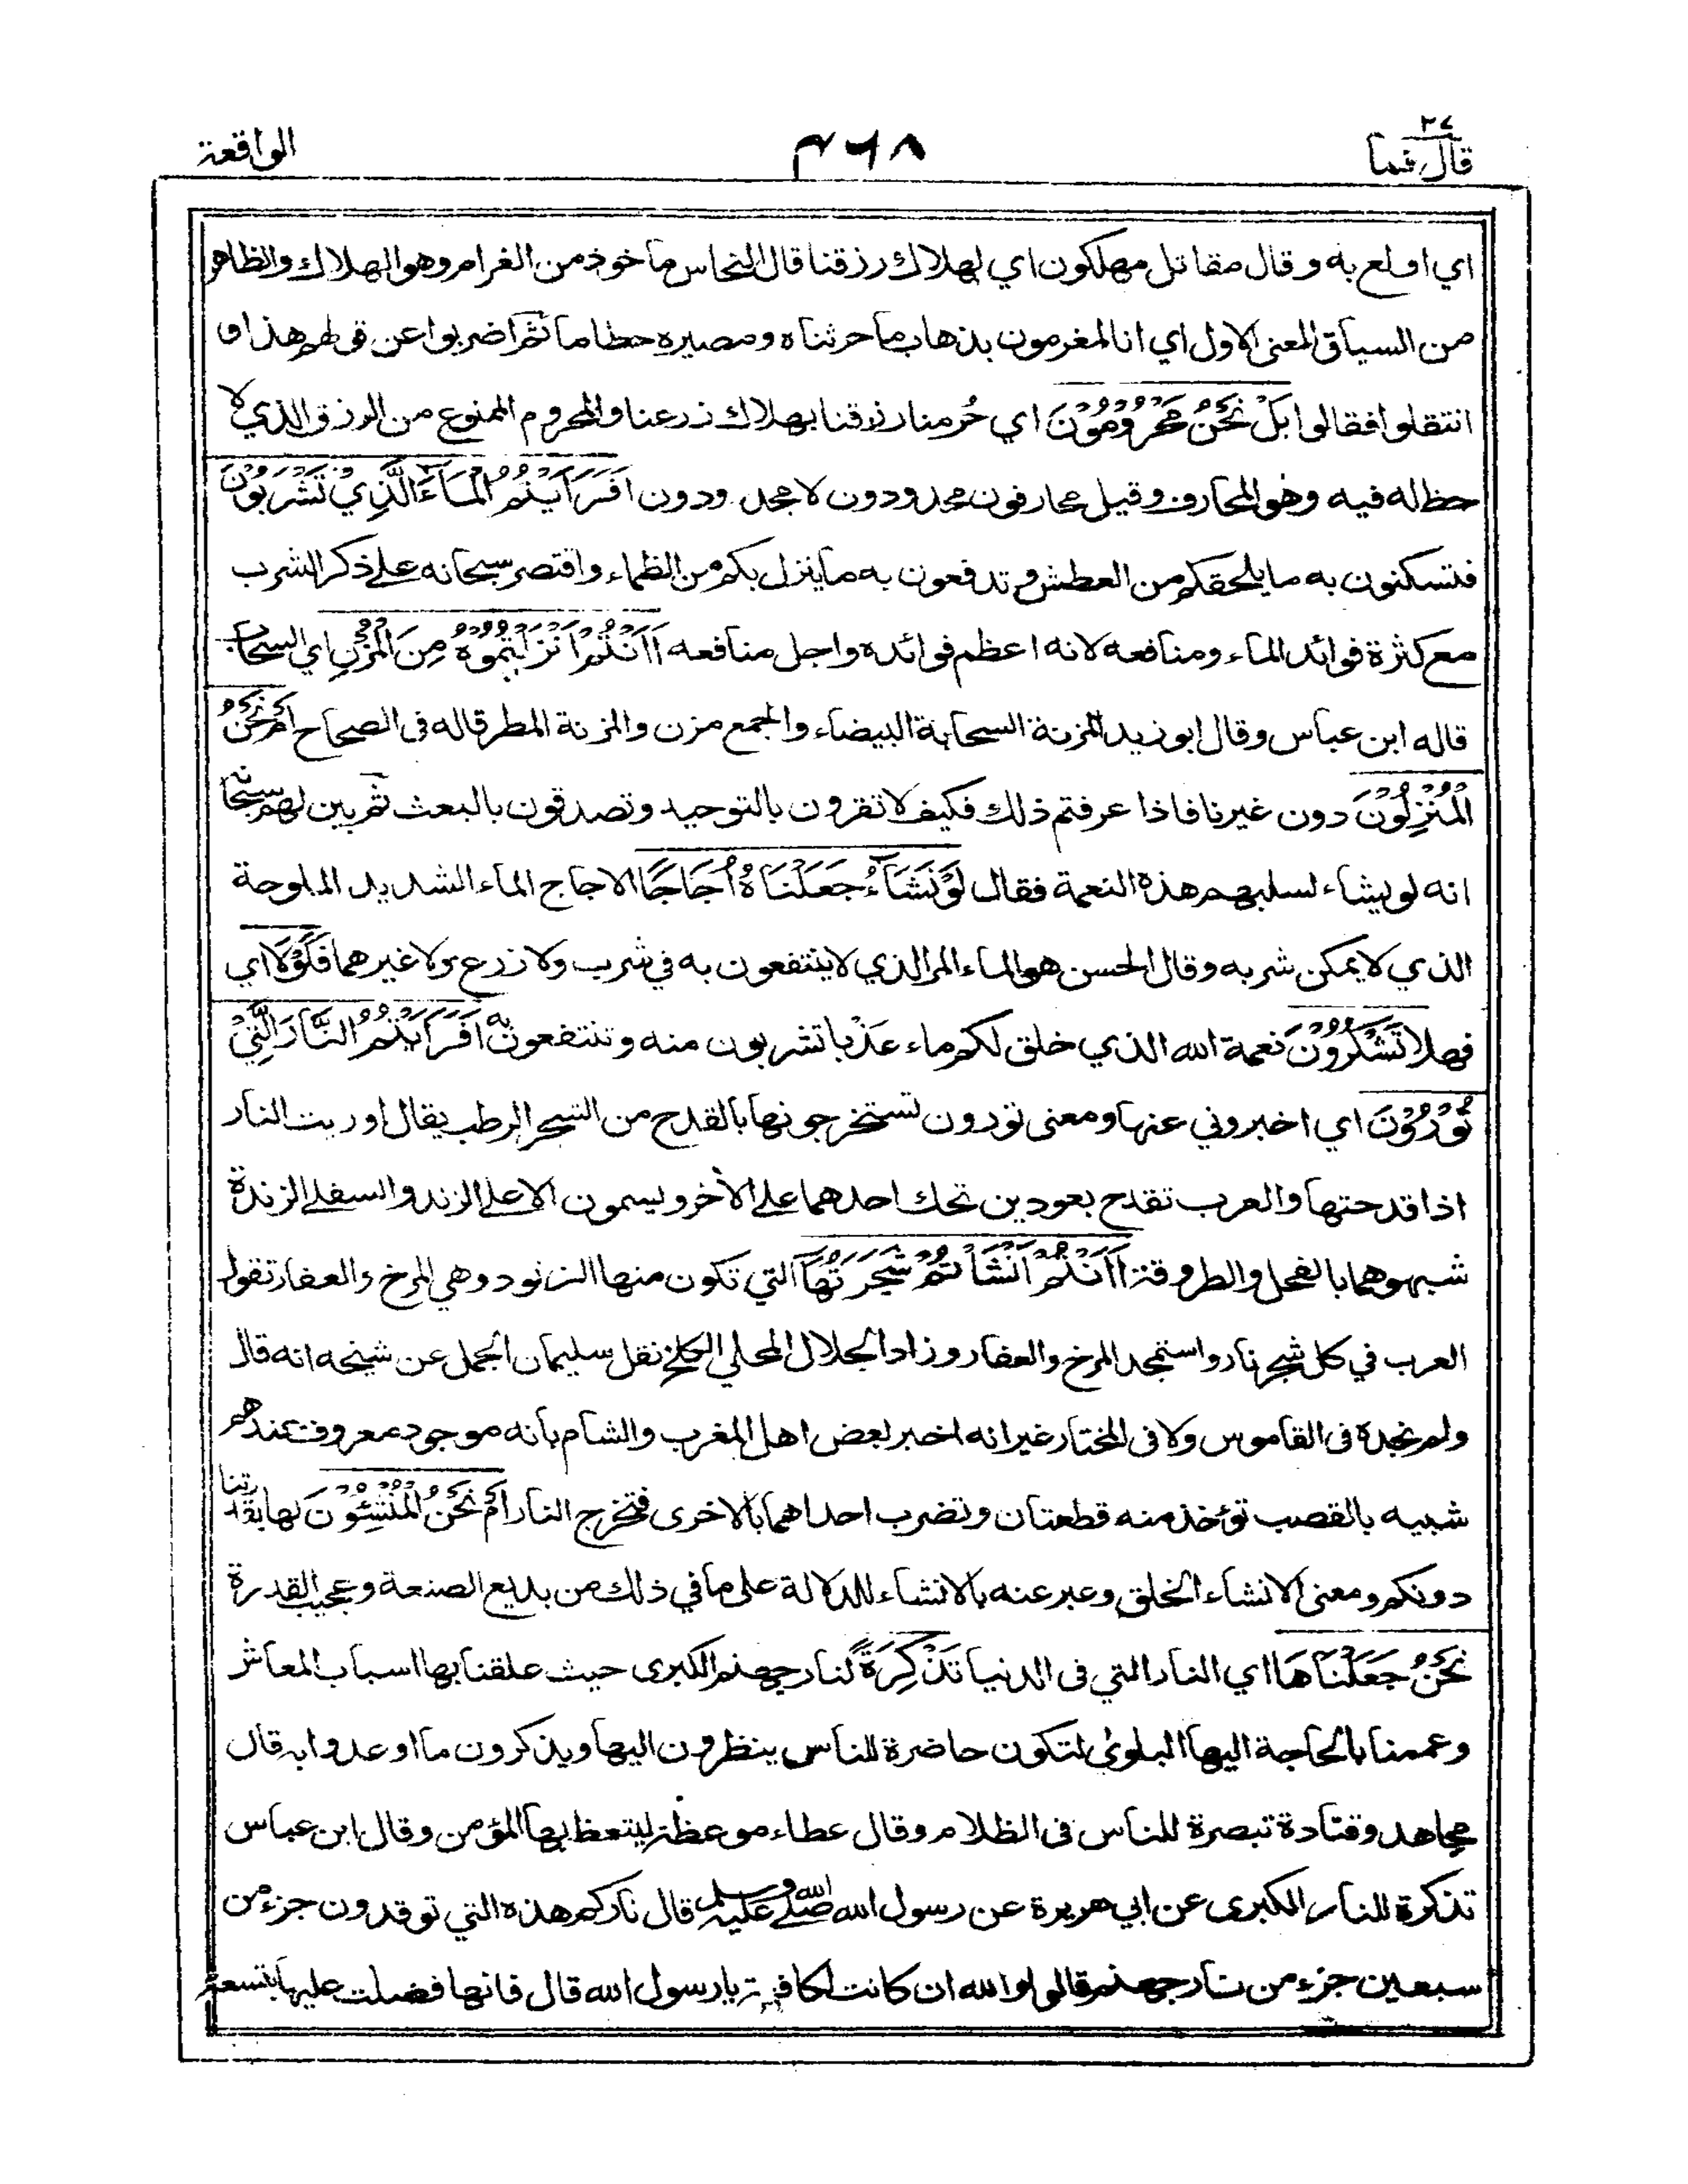 ٢٧
قال فما
٤٦٨
الواقعة
اي اولع به وقال مقاتل مهلكون اي لهلاك رزقنا قال النحاس ماخوذ من الغرام وهو الهلاك والظاهر
من السياق المعنى الاول اي انا لمغرمون بذهاب ما حرثناه ومصيره حطاما ثم اضربوا عن قولهم هذا و
انتقلوا فقالوا بَلْ نَحْنُ مَحْرُوْمُوْنَ اي حُرمنا رزقنا بهلاك زرعنا والمحروم الممنوع من الرزق الذي لا
حظ له فيه وهو المحارف وقيل محارفون محدودون لا مجدودون اَفَرَاَيْتُمُ الْمَآءَ الَّذِيْ تَشْرَبُوْنَ
فتسكنون به ما يلحقكم من العطش وتدفعون به ما ينزل بكم من الظماء واقتصر سبحانه على ذكر الشرب
مع كثرة فوائد الماء ومنافعه لانه اعظم فوائده واجل منافعه اَاَنْتُمْ اَنْزَلْتُمُوْهُ مِنَ الْمُزْنِ اي السحاب
قاله ابن عباس وقال ابوزيد المزنة السحابة البيضاء والجمع مزن والمزنة المطر قاله فى الصحاح اَمْ نَحْنُ
الْمُنْزِلُوْنَ دون غيرنا فاذا عرفتم ذلك فكيف لا تقرون بالتوحيد وتصدقون بالبعث ثم بين لهم سبحانه
انه لو يشاء لسلبهم هذه النعمة فقال لَوْ نَشَآءُ جَعَلْنَاهُ اُجَاجًا الاجاج الماء الشديد الملوحة
الذي لا يمكن شربه وقال الحسن هو الماء المر الذي لا ينتفعون به في شرب ولا زرع ولا غيرهما فَلَوْلَا اي
فهلا تَشْكُرُوْنَ نعمة الله الذي خلق لكم ماء عذبا تشربون منه وتنتفعون به اَفَرَاَيْتُمُ النَّارَ الَّتِيْ
تُوْرُوْنَ اي اخبروني عنها ومعنى تورون تستخرجونها بالقدح من الشجر الرطب يقال اوريت النار
اذا قدحتها والعرب تقدح بعودين تحك احدهما على الأخر ويسمون الاعلى الزند والسفلى الزندة
شبهوهما بالفحل والطروقة اَاَنْتُمْ اَنْشَاْتُمْ شَجَرَتَهَا التي تكون منها الزنود وهي المرخ والعفار تقول
العرب في كل شجر نار واستمجد المرخ والعفار وزاد الجلال المحلي الكلخ نقل سليمان الجمل عن شيخه انه قال
ولم نجده فى القاموس ولا فى المختار غير انه اخبر بعض اهل المغرب والشام بأنه موجود معروف عندهم
شبيه بالقصب تؤخذ منه قطعتان وتضرب احداهما بالاخرى فتخرج النار اَمْ نَحْنُ الْمُنْشِئُوْنَ لها بقدرتنا
دونكم ومعنى الانشاء الخلق وعبر عنه بالانشاء للدلالة على ما في ذلك من بديع الصنعة وعجيب القدرة
نَحْنُ جَعَلْنَاهَا اي النار التي فى الدنيا تَذْكِرَةً لنار جهنم الكبرى حيث علقنا بها اسباب المعاش
وعممنا بالحاجة اليها البلوى لتكون حاضرة للناس ينظرون اليها ويذكرون ما اوعدوا به قال
مجاهد وقتادة تبصرة للناس فى الظلام وقال عطاء موعظة ليتعظ بها المؤمن وقال ابن عباس
تذكرة للنار الكبرى عن ابي هريرة عن رسول الله صلى الله عليه وسلم قال ناركم هذه التي توقدون جزء من
سبعين جزء من نار جهنم قالوا والله ان كانت لكافية يا رسول الله قال فانها فضلت عليها بتسعة